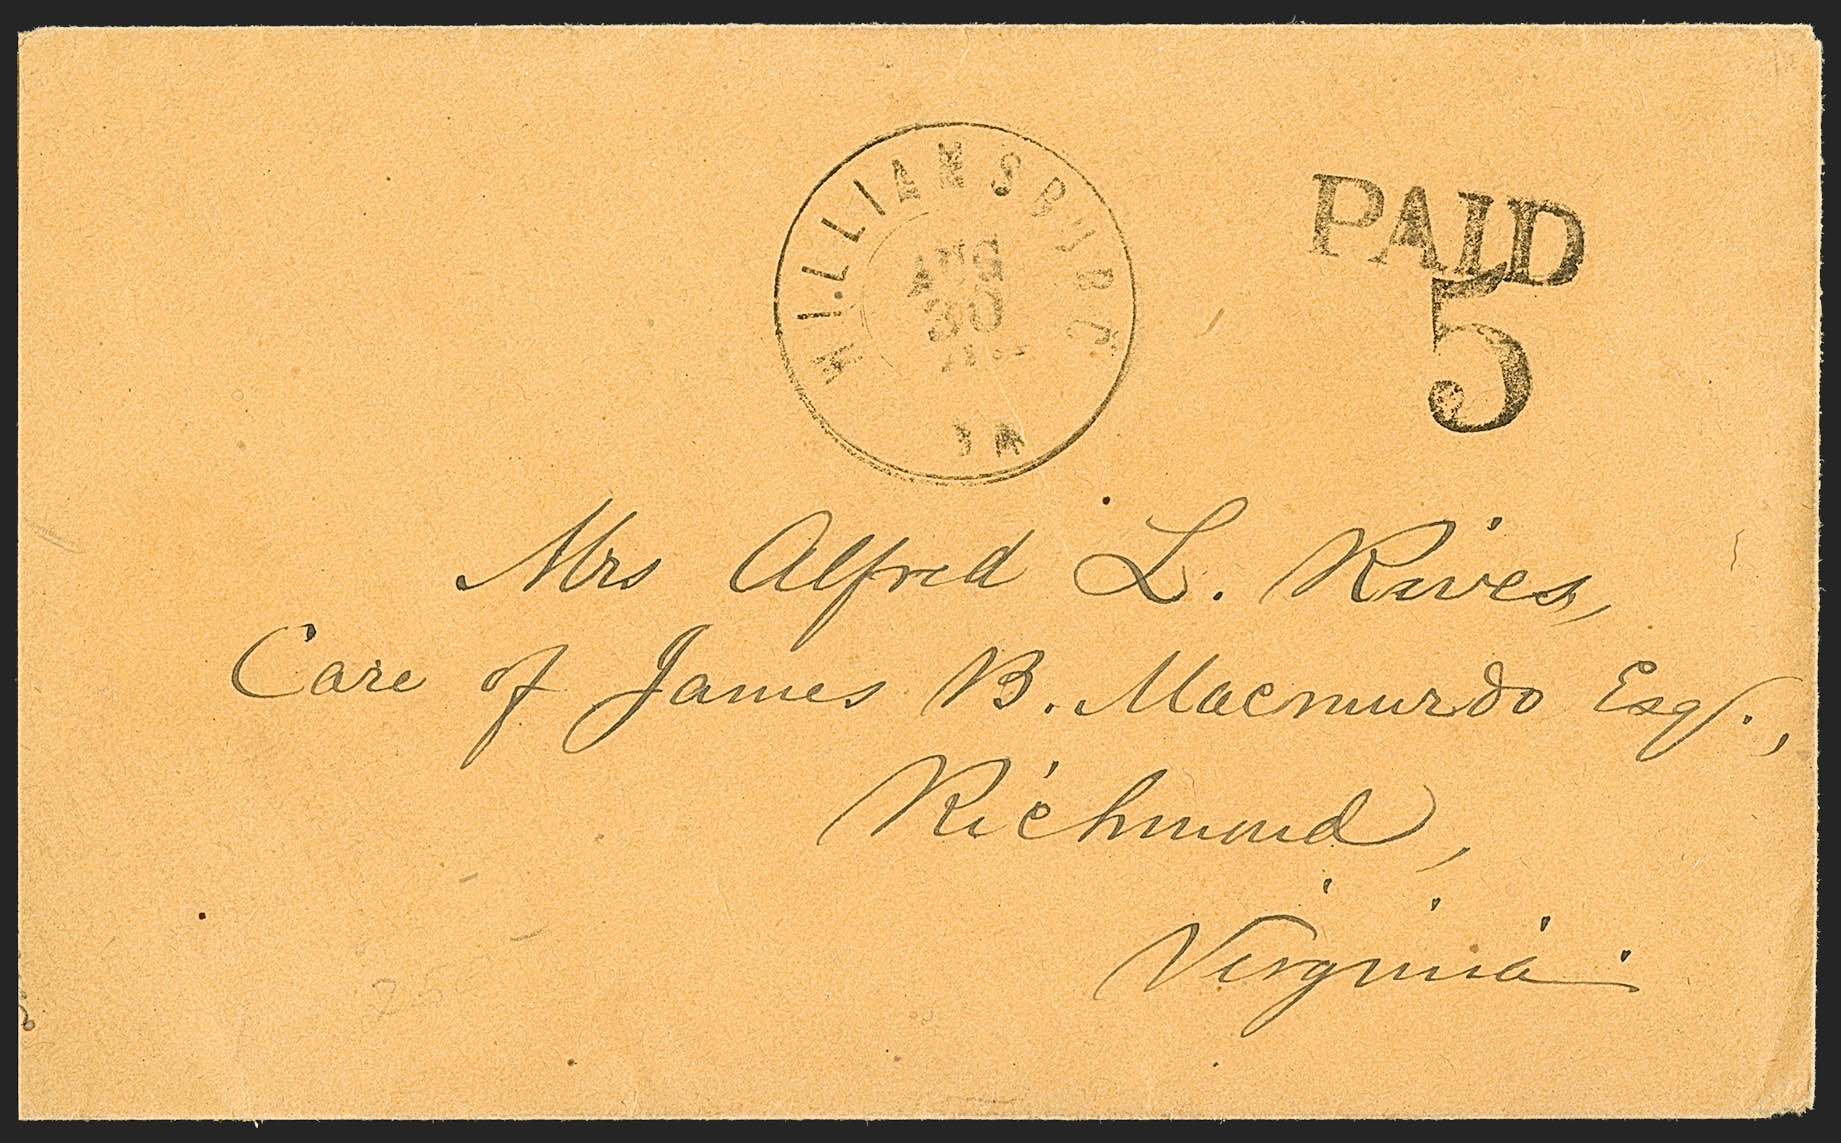 WILLIAMSBURG
AUG
30
VA
PAID
5
Mrs Alfred L. Rives,
Care of James B. Macmurdo Esqr.,
Richmond,
Virginia.
25